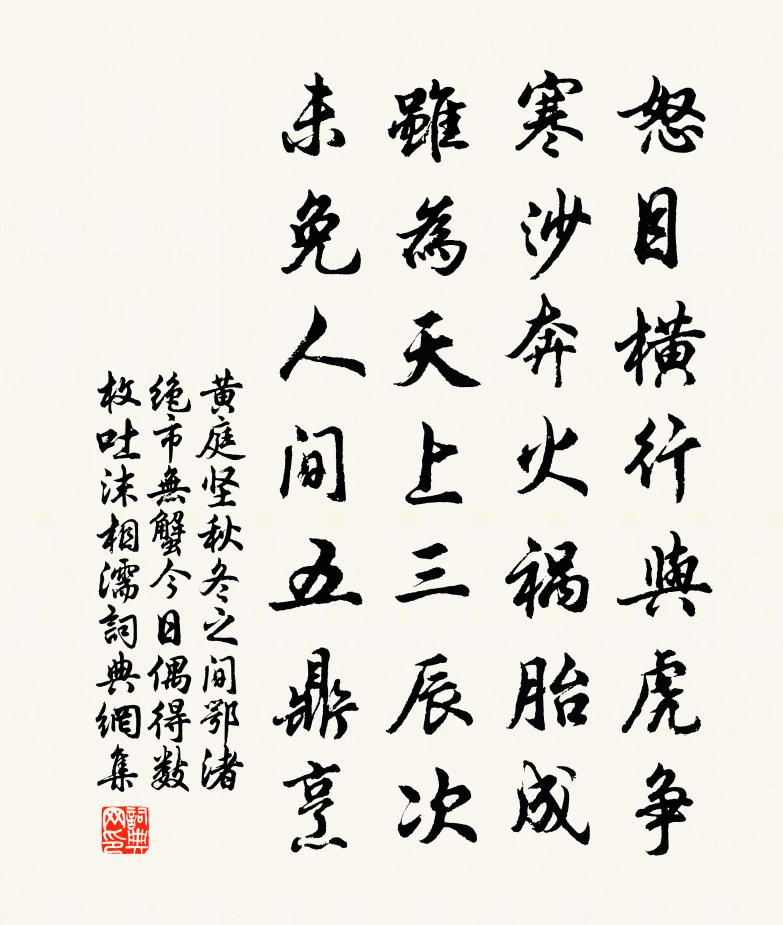 怒目横行與虎争
寒沙奔火祸胎成
雖為天上三辰次
未免人间五鼎烹
黄庭坚秋冬之间鄂渚
绝市無蟹今日偶得数
枚吐沫相濡詞典網集
詞典网印